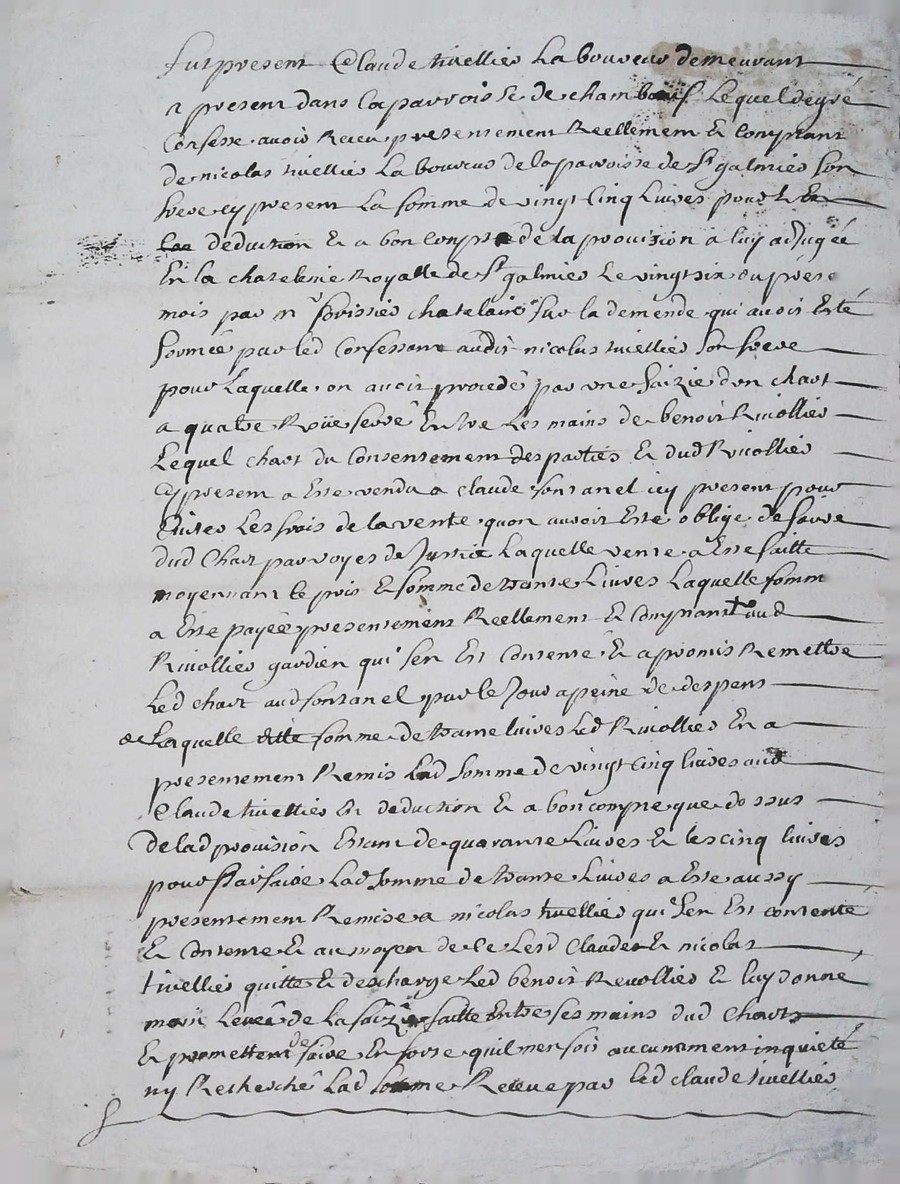 fut present Claude tivellier laboureur demeurant
a present dans la parroisse de chambeuf lequel de gré
Confesse avoir Receu presentement Reellement et Comptant
de nicolas tivellier laboureur de la parroisse de St galmier son
frere cy present la somme de vingt Cinq livres pour et en
deduction et a bon Compte de la provision a luy adjugée
En la chatelenie Royalle de St galmier le vingt six du prése
mois par chatelain sur la demende qui avoit Esté
formée par led Confessant audit nicolas tivellier son frere
pour laquelle on avoit procedé par une saizie d'un chart
a quatre Roüe ferré Entre les mains de benoit Rivollier
lequel chart du Consentement des parties et dud Rivollier
Cy present a Esté vendu a claude fontanel icy present pour
Eviter les frais de la vente quon auroit Esté oblige de faire
dud Chart par voyes de Justice laquelle vente a Esté faitte
moyennant le prix et somme de trante livres laquelle somm
a Esté payée presentement Reellement et Comptant aud
Rivollier gardien qui sen Est Contenté et a promis Remettre
led chart aud fontanel par le Jour a peine de despens
de laquelle somme de trante livres led Rivollier En a
presentement Remis lad somme de vingt Cinq livres aud
Claude tivellier En deduction et a bon compte que dessus
de lad provision Estant de quarante livres et les cinq livres
pour parfaire lad somme de trante livres a Esté aussy
presentement Remise a nicolas tivellier qui sen Est contenté
et Contente et au moyen de ce lesd Claude et nicolas
tivellier quitte et descharge led benoit Revollier et luy donne
main levée de la saizie faitte Entre ses mains dud Chart
et promettent de faire En sorte quil nen soit aucunement inquieté
ny Recherché lad somme Receue par led claude tivellier